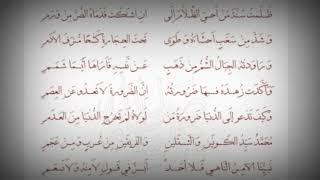 ظَلَمْتُ سُنَّةَ مَنْ أَحْيَى الظَّلَامَ إِلَى اَنِ اشْتَكَتْ قَدَمَاهُ الضُّرَّ مِنْ وَرَمِ
وَشَدَّ مِنْ سَغَبٍ أَحْشَاءَهُ وَطَوَى تَحْتَ الْحِجَارَةِ كَشْحًا مُتْرَفَ الْأَدَمِ
وَرَاوَدَتْهُ الْجِبَالُ الشُّمُّ مِنْ ذَهَبٍ عَنْ نَفْسِهِ فَأَرَاهَا أَيَّمَا شَمَمِ
وَأَكَّدَتْ زُهْدَهُ فِيهَا ضَرُورَتُهُ إِنَّ الضَّرُورَةَ لَا تَعْدُو عَلَى الْعِصَمِ
وَكَيْفَ تَدْعُو إِلَى الدُّنْيَا ضَرُورَةُ مَنْ لَوْلَاهُ لَمْ تُخْرَجِ الدُّنْيَا مِنَ الْعَدَمِ
مُحَمَّدٌ سَيِّدُ الْكَوْنَيْنِ وَالثَّقَلَيْنِ وَالْفَرِيقَيْنِ مِنْ عُرْبٍ وَمِنْ عَجَمِ
نَبِيُّنَا الْآمِرُ النَّاهِي فَلَا أَحَدٌ أَبَرَّ فِي قَوْلِ لَا مِنْهُ وَلَا نَعَمِ